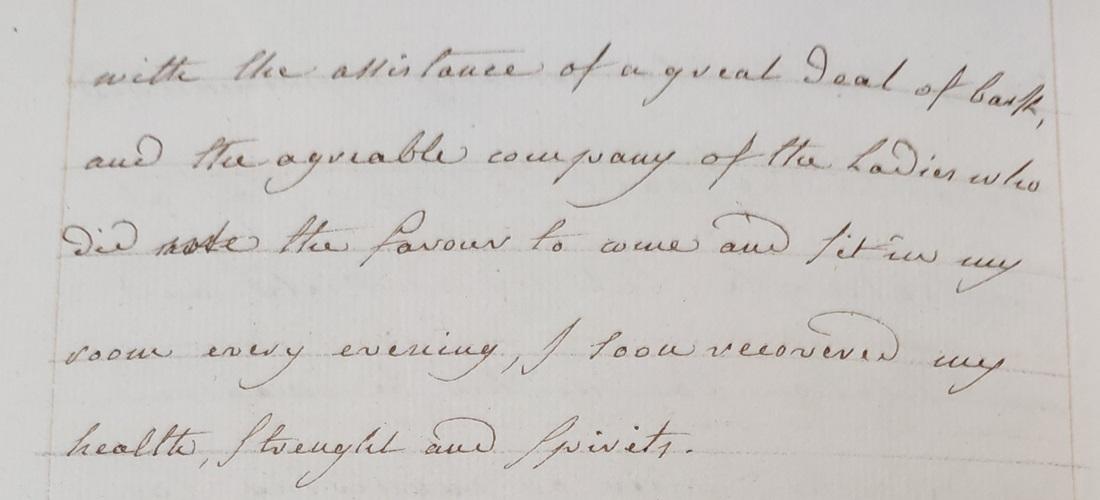 with the assistance of a great Deal of bark,
and the agreable company of the Ladies who
did the favour to come and sit in my
room every evening, I soon recovered my
health, strenght and spirits.